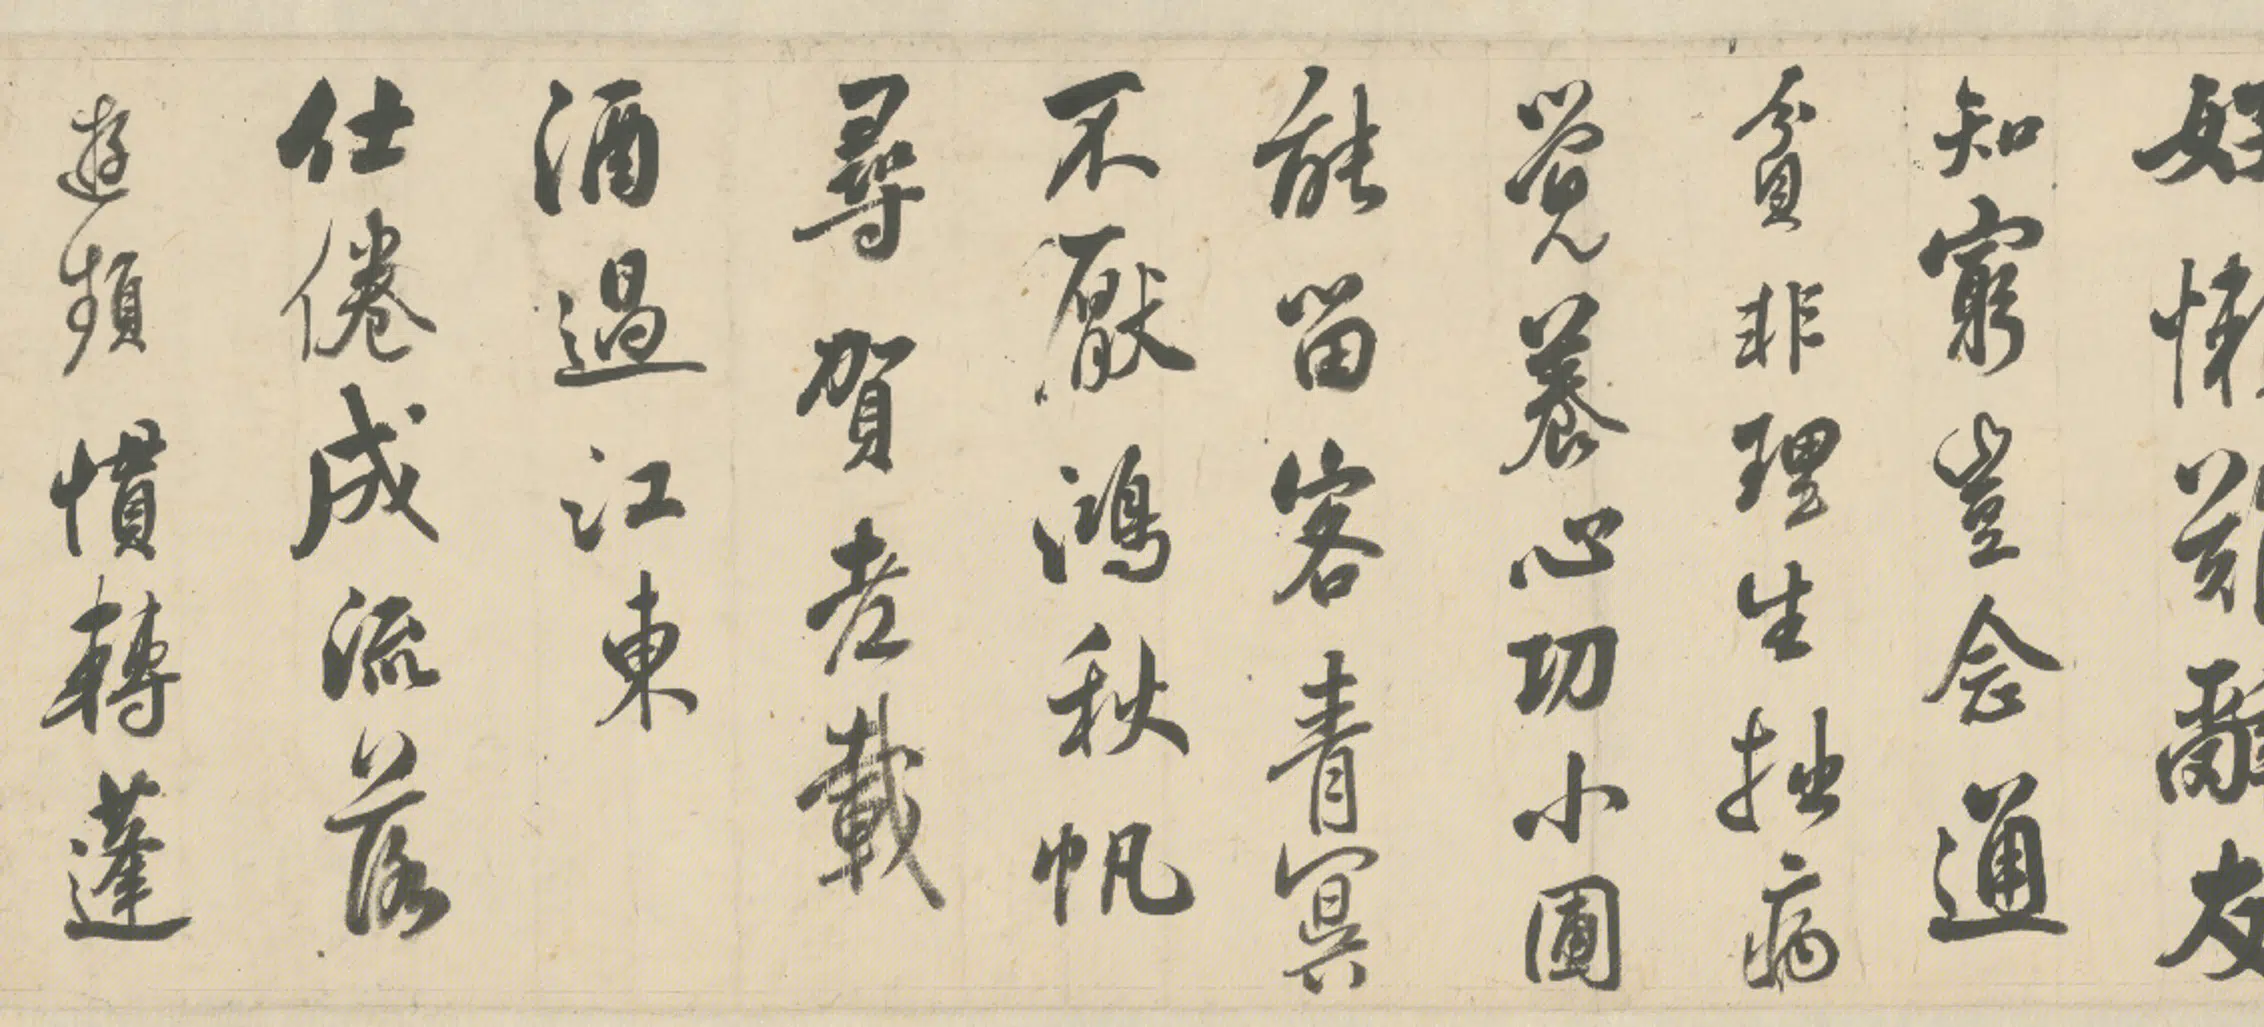 好懶難辭友
知窮豈念通
貧非理生拙病
覺養心功小圃
能留客青冥
不厭鴻秋帆
尋賀老載
酒過江東
仕倦成流落
遊頻慣轉蓬